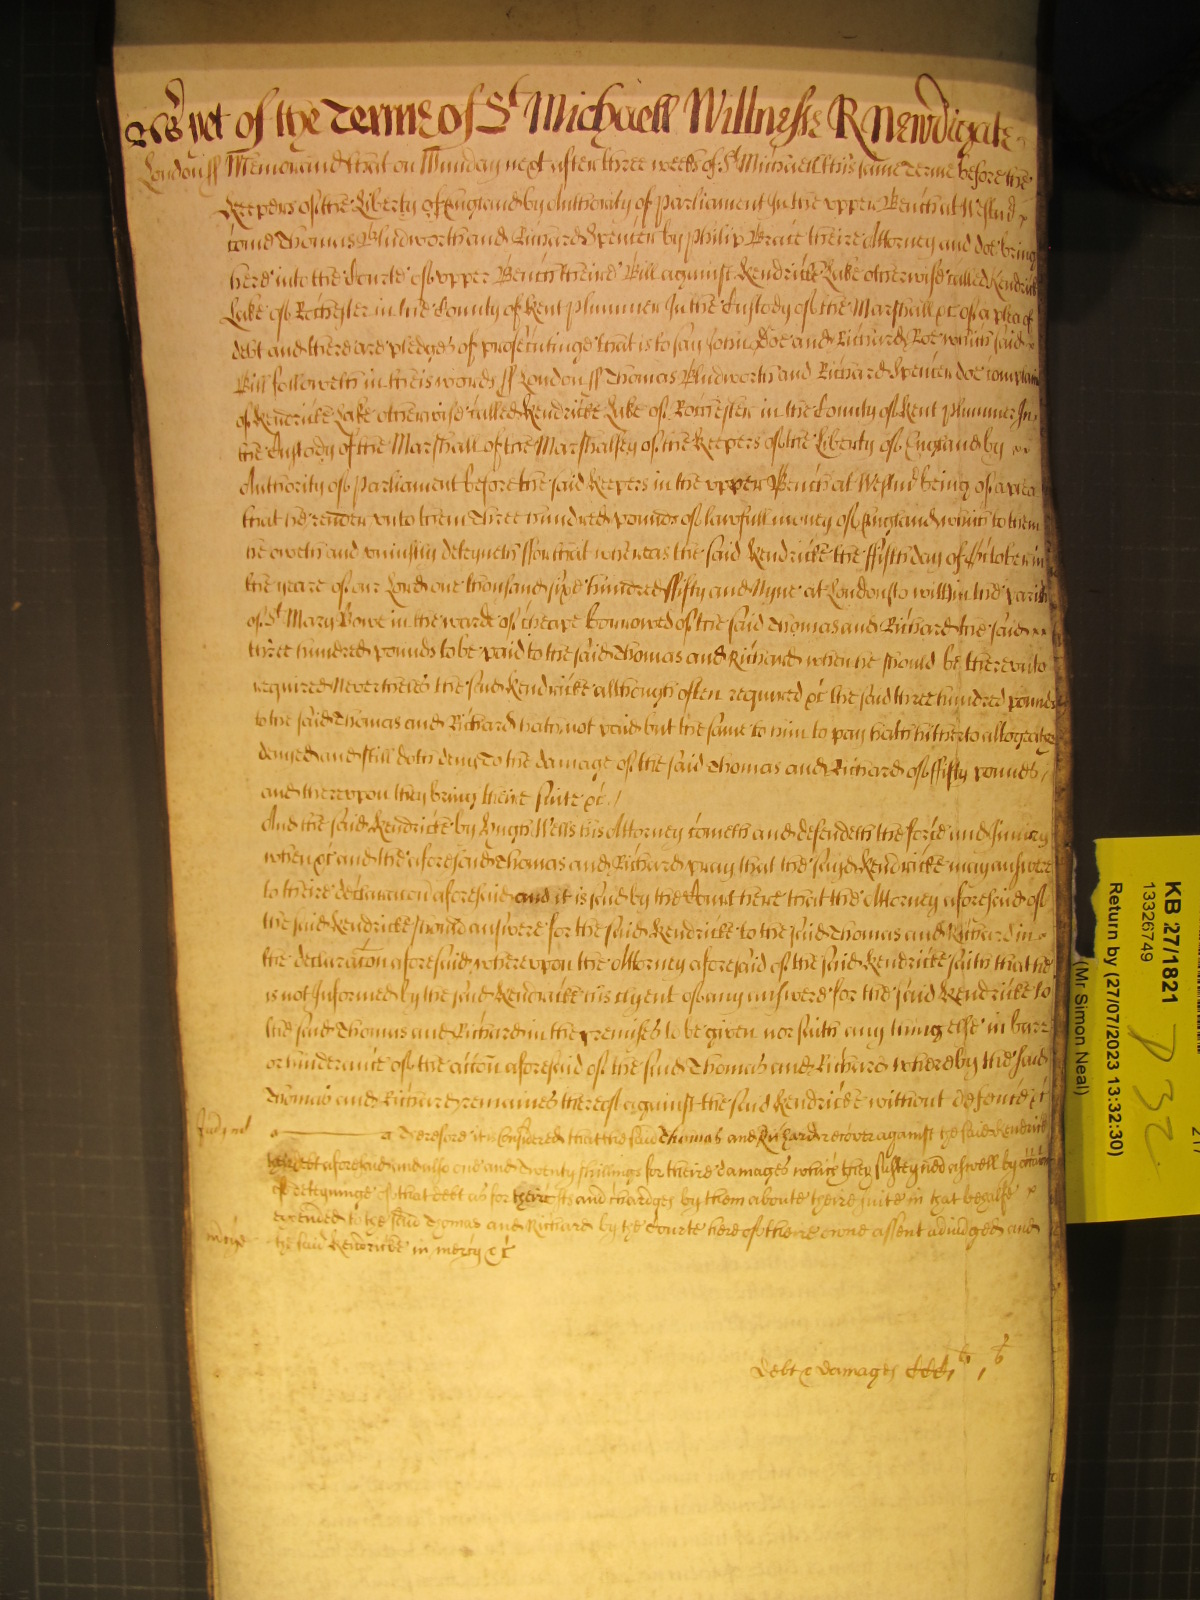 As yet of the Terme of St Michaell Willnesse R Newdigate
London ss Memorand that on Munday next after three weeks of St Michaell this same Terme before the
Keepers of the Liberty of England by Authority of Parliament In the upper Bench at Westmr
come Thomas Bludworth and Richard Spencer by Philip Brace theire Attorney and doe bring
here into the Courte of upper Bench theire Bill against Kendricke Lake otherwise called Kendricke
Lake of Rochester in the County of Kent Plummer In the Custody of the Marshall &c of a plea of
debt and there are pledges of prosecutinge that is to say John Doe and Richard Roe which said
Bill followeth in theis words ss London ss Thomas Bludworth and Richard Spencer doe complaine
of Kendricke Lake otherwise called Kendricke Lake of Rochester in the County of Kent Plummer In
the Custody of the Marshall of the Marshalsey of the Keepers of the Liberty of England by
Authority of Parliament before the said Keepers in the upper Bench at Westmr being of a plea
that he render unto them Three hundred pounds of lawfull money of England which to them
he oweth and uniustly deteyneth ffor that whereas the said Kendricke the ffifth day of October in
the yeare of our Lord one thousand sixe hundred ffifty and Nyne at London to witt in the parish
of St Mary Bowe in the warde of Cheape borrowed of the said Thomas and Richard the said
three hundred pounds to be paid to the said Thomas and Richard when he should be thereunto
required Neverthelesse the said Kendricke although often required &c the said three hundred pounds
to the said Thomas and Richard hath not paid but the same to him to pay hath hitherto altogeather
denyed and still doth deny To the damage of the said Thomas and Richard of ffifty pounds
and thereupon they bring theire suite &c
And the said Kendricke by Hugh Wells his Attorney cometh and defendeth the force and Iniury
when &c and the aforesaid Thomas and Richard pray that the said Kendricke may answere
to theire declaracon aforesaid and it is said by the Court here that the Attorney aforesaid of
the said Kendricke should answere for the said Kendricke to the said Thomas and Richard in
the declaracon aforesaid whereupon the Attorney aforesaid of the said Kendricke saith that he
is not Informed by the said Kendricke his clyent of any answere for the said Kendricke to
the said Thomas and Richard in the premises to be given nor saith any thing else in barr
or hinderance of the accon aforesaid of the said Thomas and Richard whereby the said
Thomas and Richard remaines thereof against the said Kendricke without defence &c
Judgmt Therefore it is Considered that the said Thomas and Richard recover against the said Kendricke
their debt aforesaid and also one and Twenty shillings for theire damages which they susteyned aswell by occasion
of deteyninge of that debt as for theire Costs and chardges by them aboute theire suite in that behalfe
expended to the said Thomas and Richard by the Courte here of theire owne assent adiudged and
the said Kendricke in mercy &c
Debt & damages CCCj li j s
KB 27/1821
13326749
Return by (27/07/2023 13:32:30)
(Mr Simon Neal)
P 32